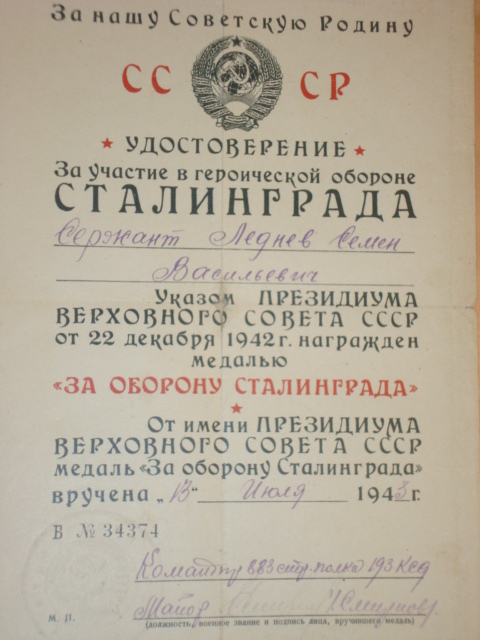 За нашу Советскую Родину
СССР
УДОСТОВЕРЕНИЕ
За участие в героической обороне
СТАЛИНГРАДА
Сержант Леднев Семен
Васильевич
Указом ПРЕЗИДИУМА
ВЕРХОВНОГО СОВЕТА СССР
от 22 декабря 1942 г. награжден
медалью
«ЗА ОБОРОНУ СТАЛИНГРАДА»
От имени ПРЕЗИДИУМА
ВЕРХОВНОГО СОВЕТА СССР
медаль «За оборону Сталинграда»
вручена „13“ Июля 1943 г.
В № 34374
Командир 883 стр. полка 193 КСД
Майор
М. П.
(должность, военное звание и подпись лица, вручившего медаль)